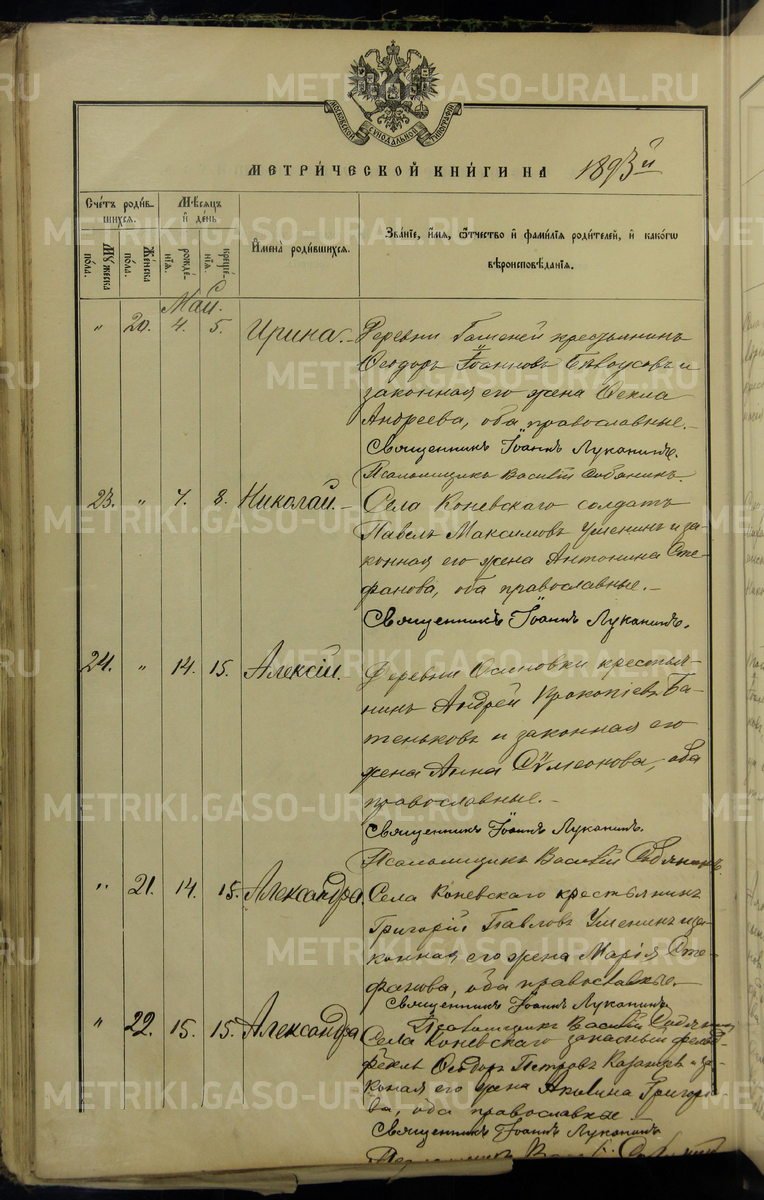 МОСКОВСКОЙ СѴНОДАЛЬНОЙ ТИПОГРАФІИ
МЕТРИ́ЧЕСКОЙ КНИ́ГИ НА 1893й
Сче́тъ роди́в-
шихся.
Му́жеска
по́ла.
Же́нска
по́ла.
Мѣ́сяцъ
и҆ де́нь
рожде́-
нїѧ.
креще́-
нїѧ.
И҆мена̀ роди́вшихся.
Зва́нїе, и҆́мѧ, ѻ҆́тчество и҆ фами́лїѧ роди́телей, и҆ како́гѡ
вѣроисповѣ́данїѧ.
Май.
" 20. 4. 5. Ирина.- Деревни Гаменей крестьянинъ
Ѳеодоръ Іоанновъ и
законная его жена Ѳекла
Андреева, оба православные.-
Священникъ Іоаннъ Луканинъ.
Псаломщикъ Василій Собянинъ.
23. " 7. 8. Николай.- Села Коневскаго солдатъ
Павелъ Максимовъ Уменинъ и за-
конная его жена Антонина Сте-
фанова, оба православные.-
Священникъ Іоаннъ Луканинъ.
24. " 14. 15. Алексій. Деревни Осиновки крестья-
нинъ Андрей Прокопіевъ Ба-
теньковъ и законная его
жена Анна Сѵмеонова, оба
православные.-
Священникъ Іоаннъ Луканинъ.
Псаломщикъ Василій Собянинъ.
" 21. 14. 15. Александра. Села Коневскаго крестьянинъ
Григорій Павловъ Уменинъ и за-
конная его жена Марія Сте-
фанова, оба православные.-
Священникъ Іоаннъ Луканинъ
Псаломщикъ Василій Собянинъ
" 22. 15. 15. Александра Села Коневскаго запасный фельд-
фебель Ѳеодоръ Петровъ Казанцевъ и за-
коная его жена Акилина Григорье-
ва, оба православные.
Священникъ Іоаннъ Луканинъ
METRIKI.GASO-URAL.RU